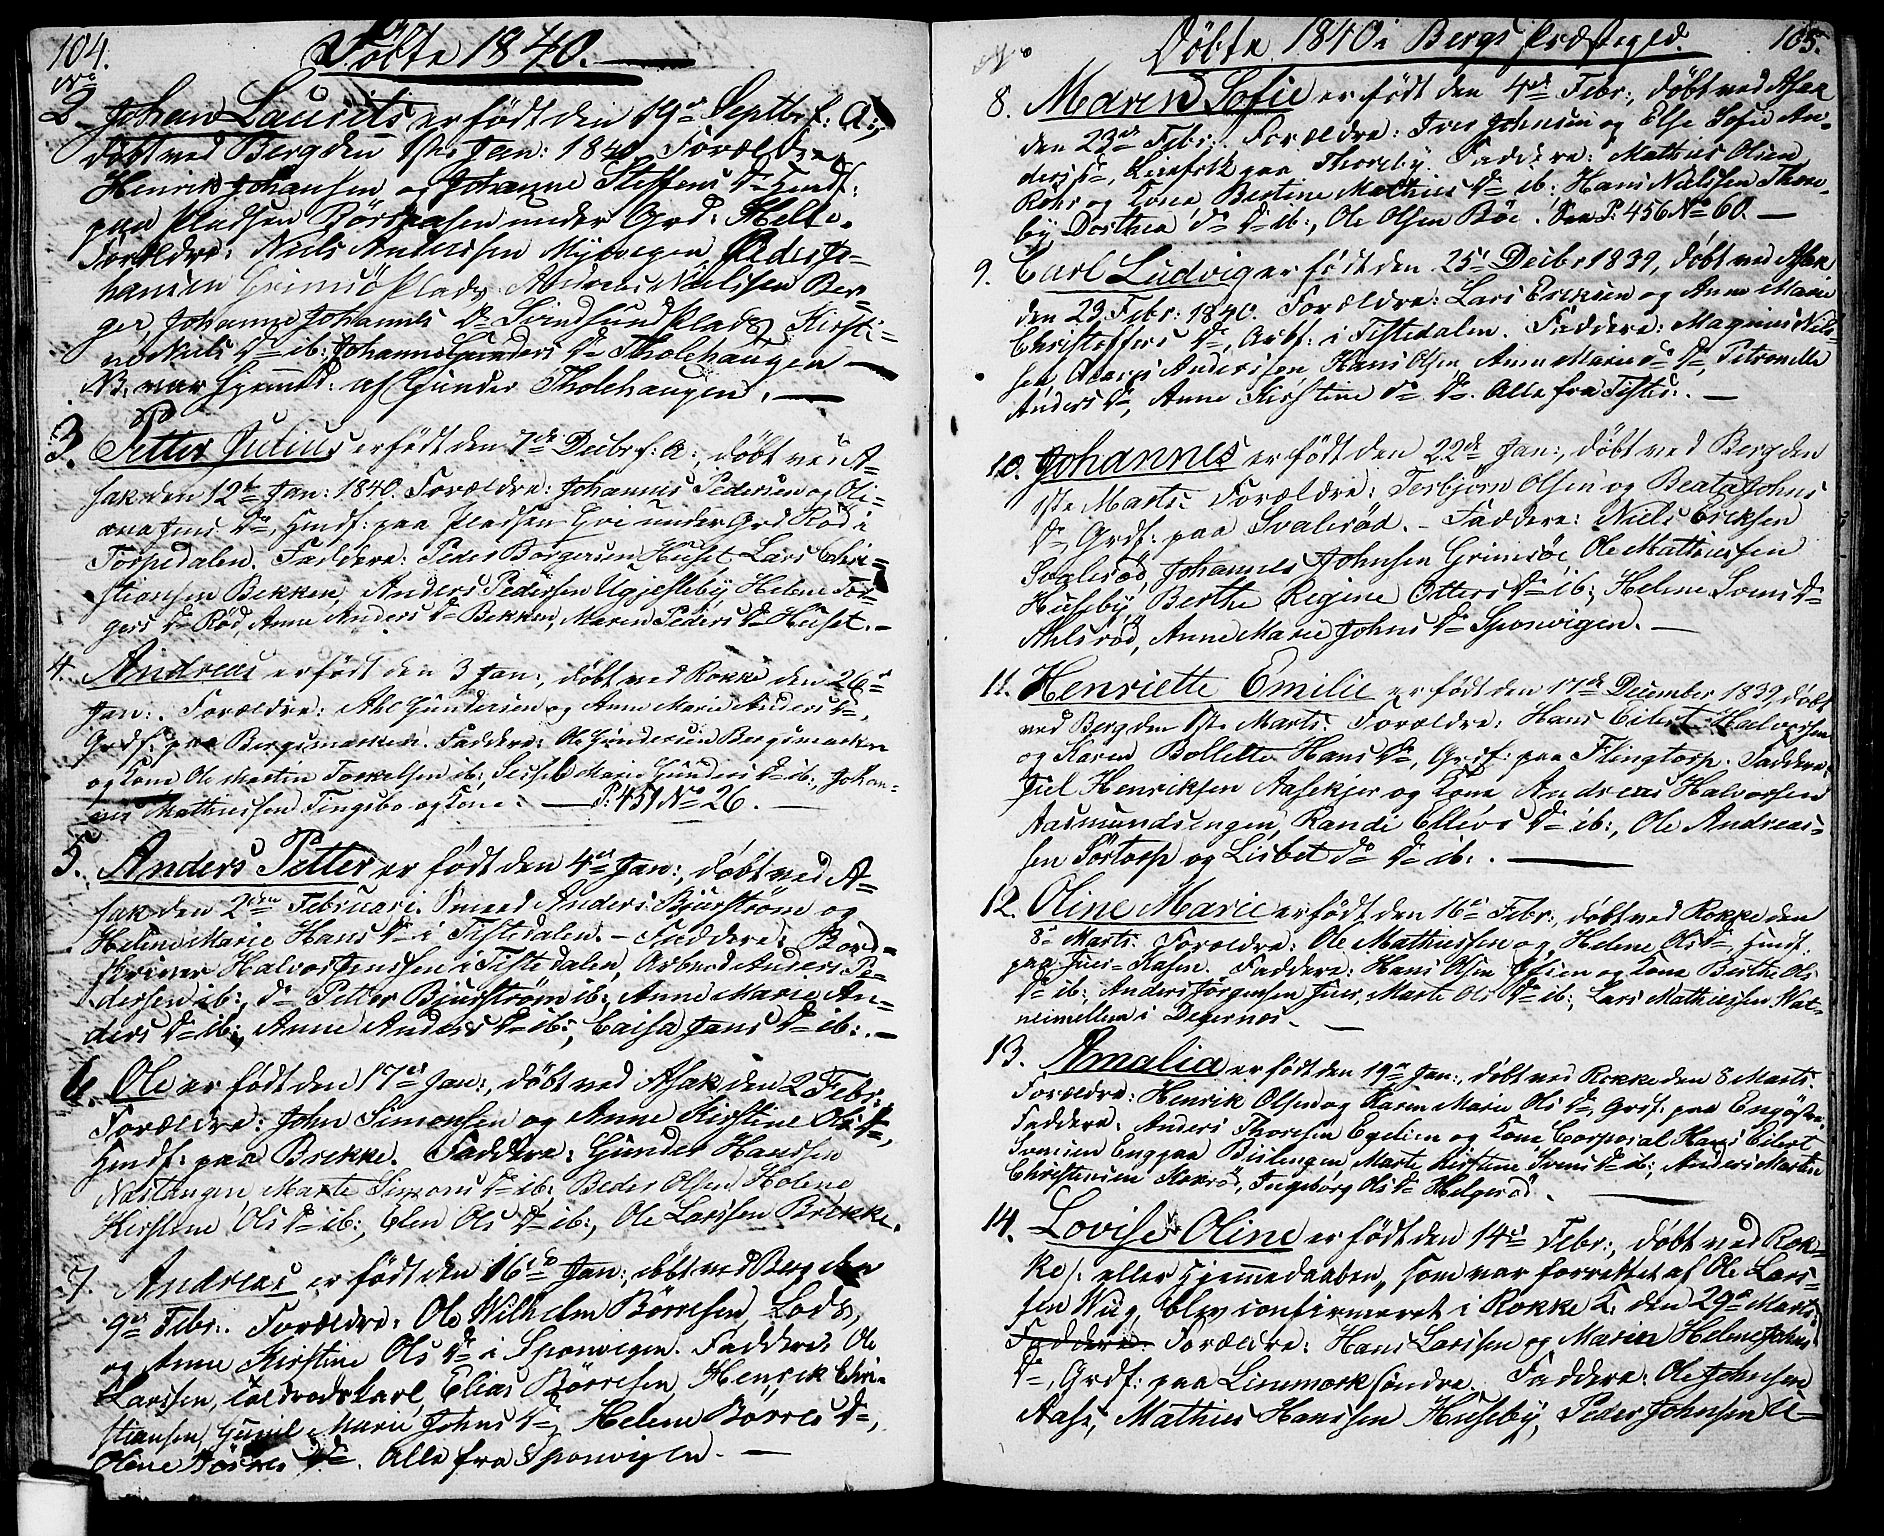 104.
Døbte 1840.
No
2. Johan Laurits er født den 19de Septbr f: A:,
døbt ved Berg den 1ste Jan: 1840. Forældre
Henrik Johansen og Johanne Steffens D. Huusf:
paa Pladsen Børsaasen under Grd: Helle.
Forældre: Niels Anderssen Myrvegen, Peder Jo-
hansen Grimsøplads, Andreas Nielssen Ber-
ger, Johanne Johannes Dr Svindsund Plads, Kirsti-
ne Niels Dr ib: Johanne Gunders Dr Tholehaugen
NB. var hjemmed: af Gunder Tholehaugen.
3. Petter Julius er født den 7de Decbr f: A:, døbt ved A-
sak den 12te Jan: 1840. Forældre: Johannes Pedersen og Oli-
ana Jens Dr, Huusf: paa Pladsen under Grd Rød i
Torpedalen. Faddere: Peder Borgersen Huset, Lars Chri-
stiansen Bekken, Anders Pedersen Ugjesteby, Helene Tor-
gers Dr Rød, Anne Anders Dr Bekken, Maren Peders Dr Huset.
4. Andreas er født den 3 Jan:, døbt ved Rokke den 26de
Jan:. Forældre: Abl Gundersen og Anne Marie Anders Dr,
Grdf: paa Bergsmarken. Faddere: Ole Gundersen Bergsmarken
og Kone, Ole Martin Torkelsen ib:, Sessel Marie Gunders Dr ib:, Johan-
nes Mathiessen Tingsbo og Kone. P: 451 No 26.
5. Anders Petter er født den 4de Jan:, døbt ved A-
sak den 2den Februari. Smeed Anders Bjurstrøm og
Helene Marie Hans Dr i Tistedalen. Faddere: Bord-
skriver Halvor Jenssen i Tistedalen, Arbmd Anders Pe-
dersen ib:, Dr Petter Bjurstrøm ib:, Anne Marie An-
ders Dr ib:, Anne Anders Dr ib:, Caisa Jans Dr ib:.
6. Ole er født den 17de Jan:, døbt ved Asak den 2 Febr.
Forældre: John Simonsen og Anne Kirstine Ols Dr,
Huusf: paa Brekke. Faddere: Gunder Hansen
Næstangen, Marte Simons Dr ib:, Peder Olsen, Helene
Kirstine Ols Dr ib:, Elen Ols Dr ib:, Ole Larssen Brekke.
7. Andreas er født den 16de Jan:, døbt ved Berg den
9de Febr:. Forældre: Ole Wilhelm Børresen, Lods,
og Anne Kirstine Ols Dr i Sponvigen. Faddere: Ole
Larssen, Elias Børresen, Henrik Chri-
stiansen, Gunil Marie Johns Dr, Helene Børres Dr,
Oline Børres Dr. Alle fra Sponvigen.
Døbte 1840 i Bergs Præstegjeld. 105.
No
8. Maren Sofie er født den 4de Febr:, døbt ved Asak
den 23de Febr:. Forældre: Iver Johnsen og Else Sofie An-
ders Dr, Leiefolk paa Thoreby. Faddere: Mathies Olsen
Rohr og Kone, Bertine Mathies Dr ib:, Hans Nielssen Thore-
by, Dorthea Do Dr ib:, Ole Olsen Bøe. See P: 456 No 60.
9. Carl Ludvig er født den 25de Decbr 1839, døbt ved Asak
den 23 Febr: 1840. Forældre: Lars Eriksen og Anne Marie
Christoffers Dr, Arbf: i Tistedalen. Faddere: Magnus Niel-
sen, Anderssen, Hans Olsen, Anne Marie Do Dr, Petronelle
Anders Dr, Anne Kirstine Do Dr. Alle fra Tisted:.
10. Johannes er født den 22de Jan:, døbt ved Berg den
1ste Marts. Forældre: Torbjørn Olsen og Beata Johns
Dr, Grdf: paa Svalerød. Faddere: Niels Eriksen
Svalerød, Johannes Johnsen Grimsøe, Ole Mathiessen
Huseby, Berthe Regine Otters Dr ib:, Helene Svens Dr
Ahlsrød, Anne Marie Johns Dr Sponvigen.
11. Henriette Emilie er født den 17de December 1839, døbt
ved Berg den 1ste Marts. Forældre: Hans Eilert Halvorsen
og Karen Bollette Hans Dr, Grdf: paa Flingtorp. Faddere:
Juel Henriksen Aasekjer og Kone, Andreas Halvorsen
Aasmundsengen, Randi Ellevs Dr ib:, Ole Andreas-
sen Sørtorp og Lisbet Do Dr ib:.
12. Oline Marie er født den 16de Febr:, døbt ved Rokke den
8de Marts. Forældre: Ole Mathiessen og Helene Ols Dr, Huusf.
paa Kasen. Faddere: Hans Olsen og Kone, Berthe Ols
Dr ib:, Anders Jørgensen, Marte Ols Dr ib:, Lars Mathiessen Wat-
neimellem i Degernæs.
13. Amalia er født den 19de Jan:, døbt ved Rokke den 8 Marts.
Forældre: Henrik Olsen og Karen Marie Ols Dr, Grdf: paa
Faddere: Anders Thoresen og Kone, Corporal Hans Eilert
Svensen Eng paa Bislengen, Marte Kirstine Svens Dr ib:, Anders Martin
Christensen Kokrød, Ingeborg Ols Dr Helgerød.
14. Lovise Oline er født den 14de Febr:, døbt ved Rok-
ke/: eller Hjemmedaaben, som var forrettet af Ole Lars-
sen Wug, blev confirmeret i Rokke K. den 29de Marts
Faddere: Forældre: Hans Larssen og Maren Helene Johns
Dr, Grdf: paa Liremark søndre. Faddere: Ole Johnsen
Aase, Mathies Hanssen Huseby, Peder Johnsen